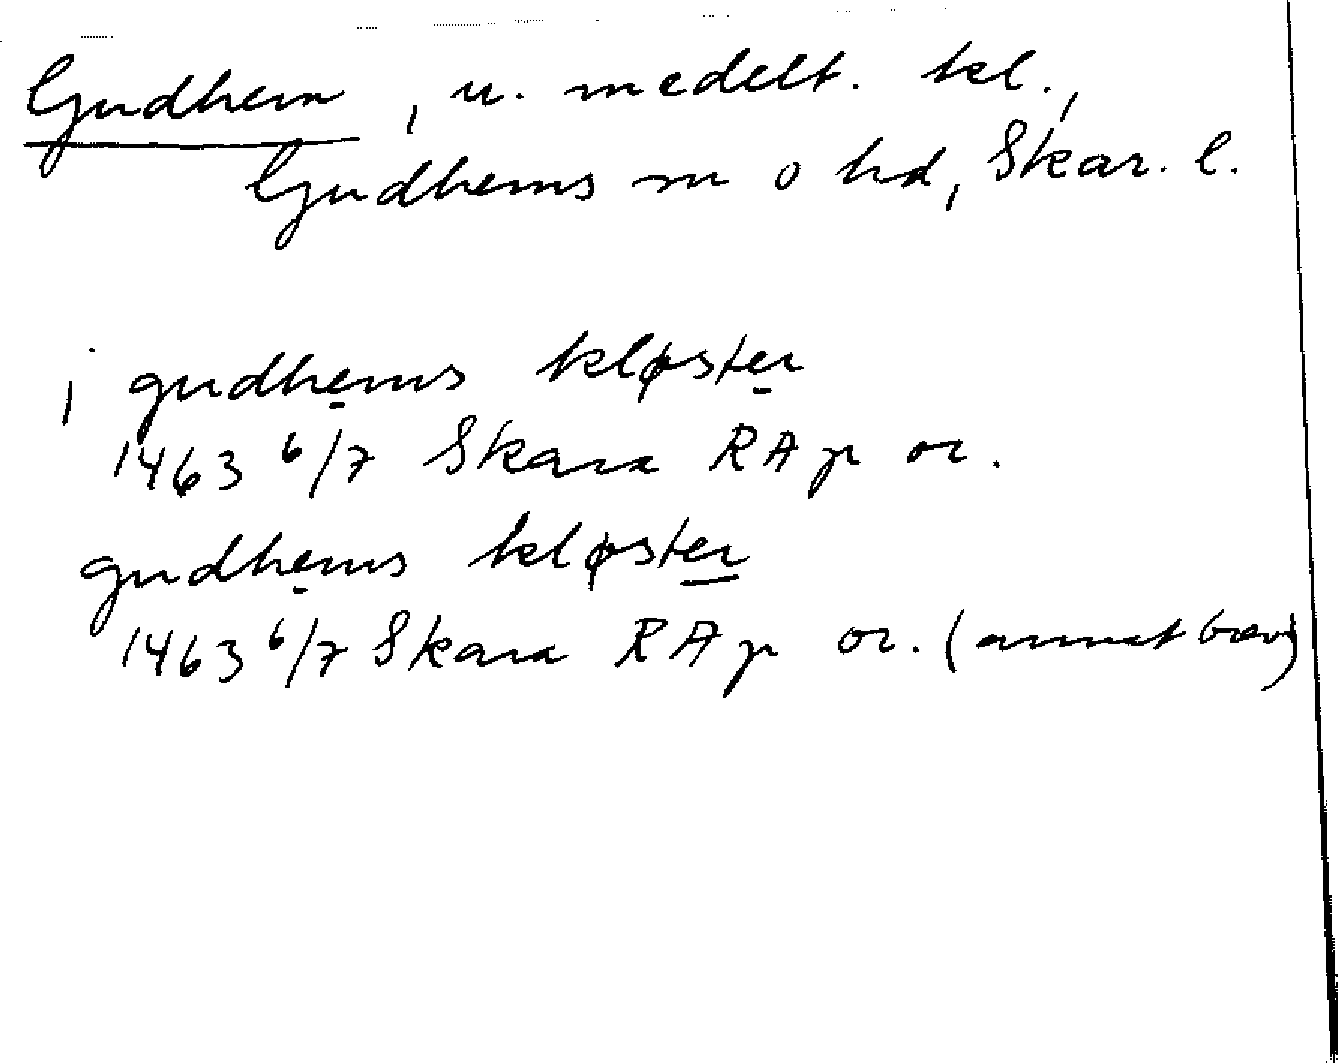 Gudhem, u. medelt. kl.,
Gudhems sn o hd, Skar. l.
j gudhems kløster
1463 6/7 Skara RAp or.
gudhems kløster
1463 6/7 Skara RAp or. (annat brev)